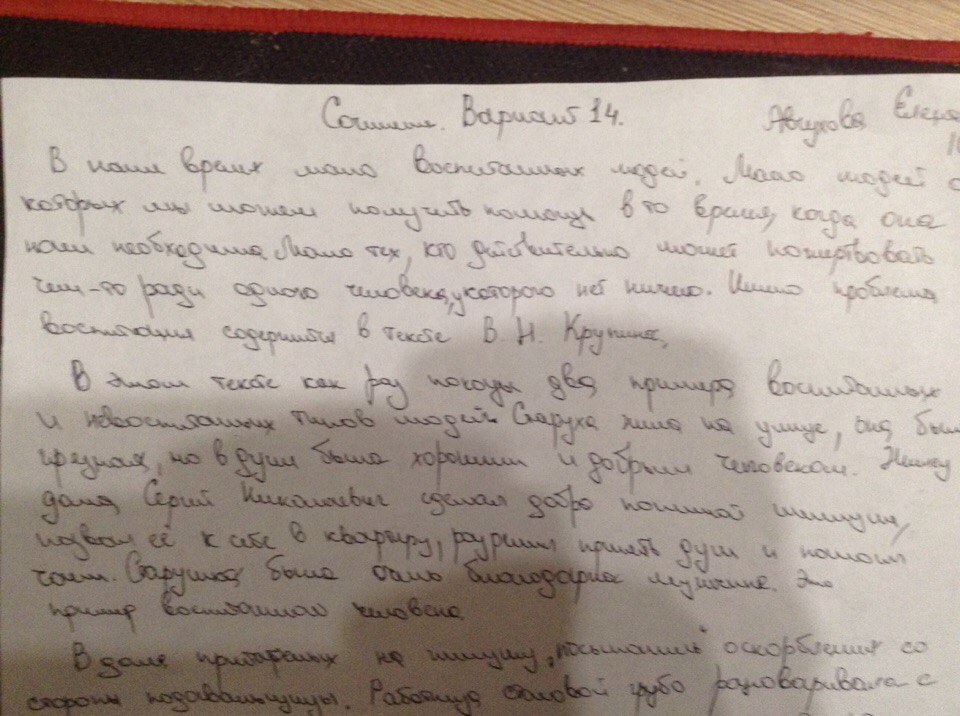 Сочинение. Вариант 14. Авчухова Елена
В наше время мало воспитанных людей. Мало людей о
которых мы можем получить помощь в то время, когда она
нам необходима. Мало тех, кто действительно может пожертвовать
чем-то ради одного человека, у которого нет ничего. Именно проблема
воспитания содержится в тексте В. Н. Крупина.
В этом тексте как раз показаны два примера воспитанных
и невоспитанных типов людей. Старуха жила на улице, она был
грязная, но в душе была хорошим и добрым человеком.
дама, Сергей Николаевич сделал добро пожилой женщине,
позвал её к себе в квартиру, разрешил принять душ и напоил
чаем. Старушка была очень благодарна мужчине. Это
пример воспитанного человека.
В доме престарелых на женщину "посыпались" оскорбления со
стороны подавальщицы. Работница столовой грубо разговаривала с